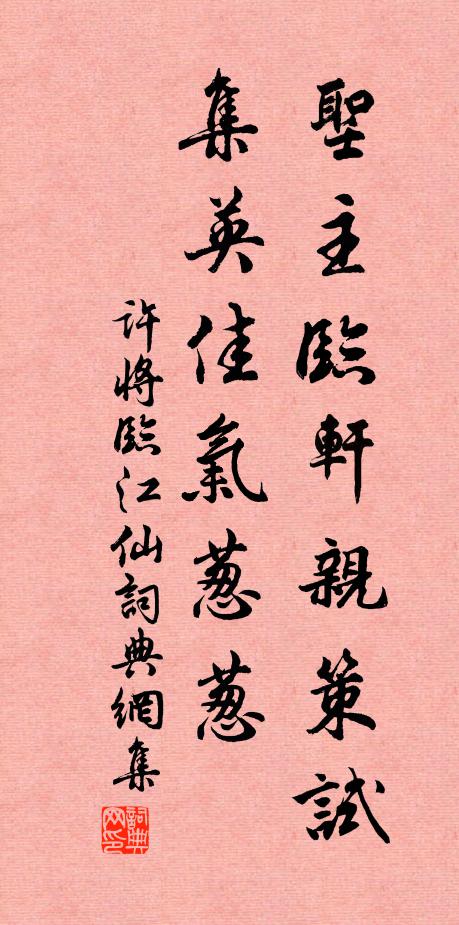 聖主臨軒親策試
集英佳氣葱葱
許將臨江仙詞典網集
詞典网印